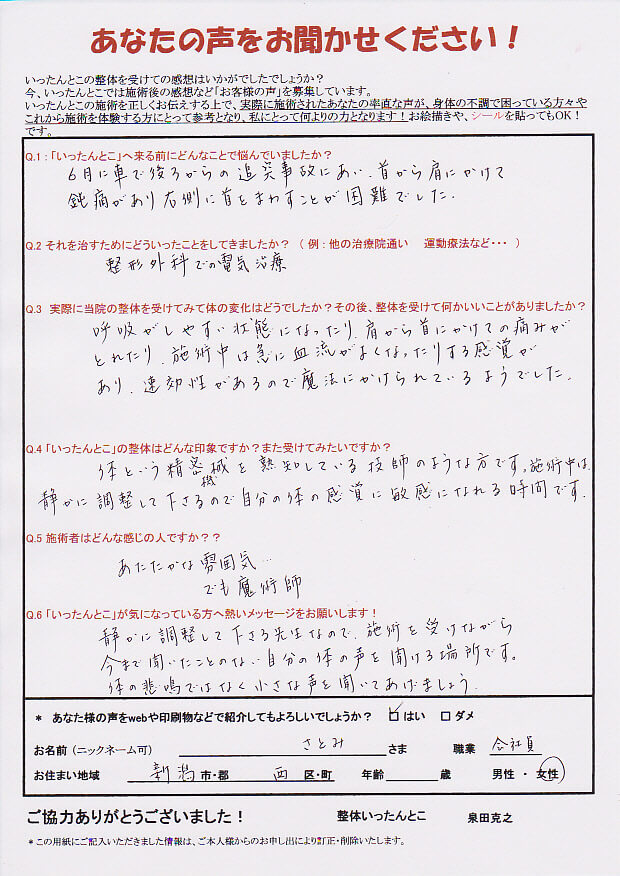 あなたの声をお聞かせください！
いったんとこの整体を受けての感想はいかがでしたでしょうか？
今、いったんとこでは施術後の感想など「お客様の声」を募集しています。
いったんとこの施術を正しくお伝えする上で、実際に施術されたあなたの率直な声が、身体の不調で困っている方々や
これから施術を体験する方にとって参考となり、私にとって何よりの力となります！お絵描きや、シールを貼ってもOK！
です。
Q.1：「いったんとこ」へ来る前にどんなことで悩んでいましたか？
6月に車で後ろからの追突事故にあい、首から肩にかけて
鈍痛があり右側に首をまわすことが困難でした.
Q.2 それを治すためにどういったことをしてきましたか？（例：他の治療院通い　運動療法など・・・）
整形外科での電気治療
Q.3　実際に当院の整体を受けてみて体の変化はどうでしたか？その後、整体を受けて何かいいことがありましたか？
呼吸がしやすい状態になったり、肩から首にかけての痛みが
とれたり、施術中は急に血流がよくなったりする感覚が
あり、速効性があるので魔法にかけられているようでした.
Q.4「いったんとこ」の整体はどんな印象ですか？また受けてみたいですか？
体という精密機械を熟知している技師のような方です。施術中は
静かに調整して下さるので自分の体の感覚に敏感になれる時間です.
Q.5 施術者はどんな感じの人ですか？？
あたたかな雰囲気…
でも魔術師
Q.6「いったんとこ」が気になっている方へ熱いメッセージをお願いします！
静かに調整して下さる先生なので、施術を受けながら
今まで聞いたことのない自分の体の声を聞ける場所です。
体の悲鳴ではなく小さな声を聞いてあげましょう.
＊ あなた様の声をwebや印刷物などで紹介してもよろしいでしょうか？ ☑ はい □ ダメ
お名前（ニックネーム可） さとみ さま 職業 会社員
お住まい地域 新潟 市・郡 西 区・町 年齢 歳 男性 ・ 女性
ご協力ありがとうございました！ 整体いったんとこ 泉田克之
＊この用紙にご記入いただきました情報は、ご本人様からのお申し出により訂正・削除いたします。